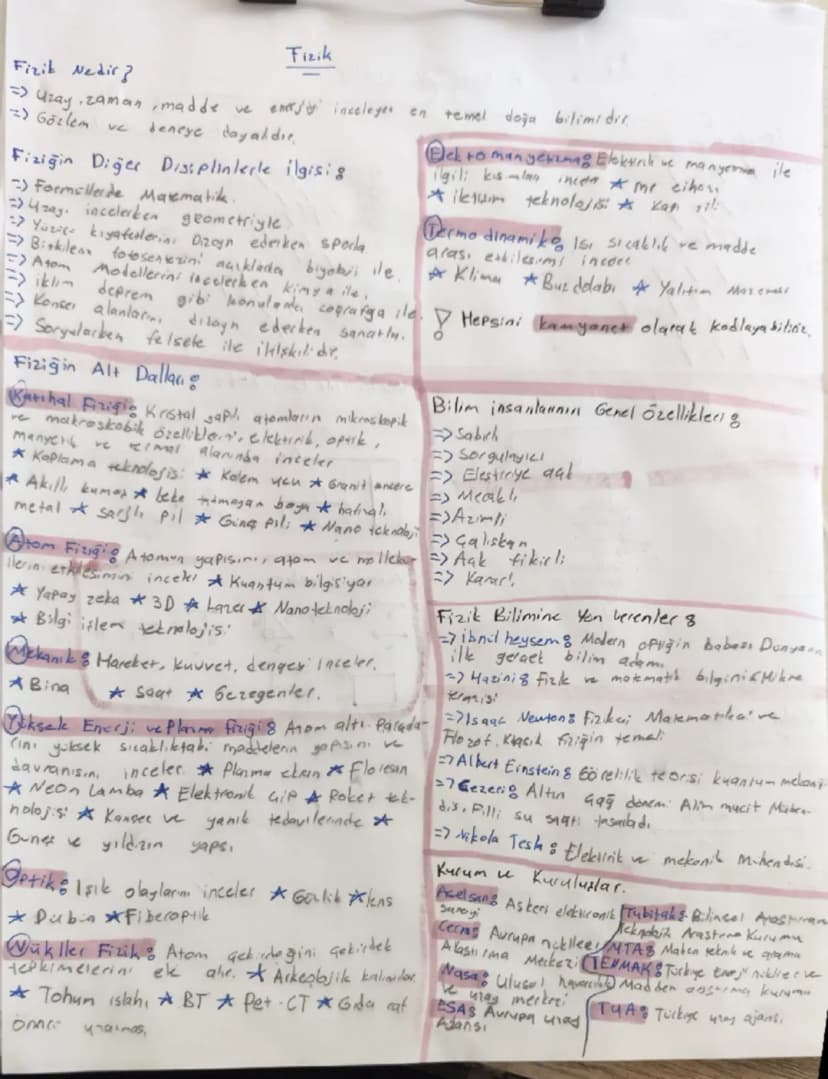 Fizik
Fizik Nedir?
=> Uzay, zaman, madde ve enerjiyi inceleyen en temel doğa bilimidir.
=> Gözlem ve deneye dayalıdır.
Fiziğin Diğer Disiplinlerle ilgisi:
=> Formüllerde Matematik.
=> Uzayı incelerken geometriyle
=> Yüzücü kıyafetlerini Dizayn ederken sporla
=> Bitkilerin fotosentezini açıklarken biyoloji ile.
=> Atom Modellerini incelerken kimya ile,
=> iklim deprem gibi konularda coğrafya ile.
=> Konser alanlarını dizayn ederken sanatla.
=> Sorgularken felsefe ile ilişkilidir.
Fiziğin Alt Dalları:
Katıhal Fiziği: Kristal yapılı atomların mikroskopik
ve makroskobik özelliklerini, elektirik, optik,
manyetik ve termal alanında inceler
* Kaplama teknolojisi * Kalem ucu * Granit
* Akıllı kumaş * leke tutmayan boya * hafızalı
metal * şarjlı pil * Güneş Pili * Nano teknoloji
Atom Fiziği: Atomun yapısını, atom ve molekül
lerin etkileşimini inceler * Kuantum bilgisiyar
* Yapay zeka * 3D * Lazer * Nanoteknoloji
* Bilgi işlem teknolojisi
Mekanik: Hareket, kuvvet, dengeyi inceler.
* Bina * Saat * Gezegenler.
Yüksek Enerji ve Plazma Fiziği: Atom altı Parçacık-
ları yüksek sıcaklıktaki maddelerin yapısını ve
davranışını inceler. * Plazma ekran * Floresan
* Neon Lamba * Elektronik Çip * Roket tek-
nolojisi * Kanser ve yanık tedavilerinde *
Güneş ve yıldızın yapısı
Optik: Işık olaylarını inceler * Gözlük * lens
* Dürbün * Fiberoptik
Nükller Fizik: Atom çekirdeğini çekirdek
tepkimelerini ele alır. * Arkeolojik kalıntılar
* Tohum ıslahı * BT * Pet-CT * Gıda raf
ömrü uzaması
Elektromanyetizma: Elektirik ve manyetizma ile
ilgili kısımları inceler * mr cihazı
* iletişim teknolojisi * Kapı zili
Termodinamik: Isı sıcaklık ve madde
arası etkileşimi inceler
* Klima * Buzdolabı * Yalıtım Malzemesi
! Hepsini kamyonet olarak kodlayabiliriz.
Bilim insanlarının Genel Özellikleri:
=> Sabırlı
=> Sorgulayıcı
=> Eleştiriye açık
=> Meraklı
=> Azimli
=> Çalışkan
=> Açık fikirli
=> Kararlı
Fizik Bilimine Yön verenler:
=> ibnil heysem: Modern optiğin babası Dünyanın
ilk gerçek bilim adamı
=> Hazini: Fizik ve matematik bilgini: Mikro
terazisi
=> Isaac Newton: Fizikçi Matematikçi ve
Filozof. Klasik fiziğin temeli
=> Albert Einstein: Görelilik teorisi kuantum mekaniği
=> Cezeri: Altın çağ dönemi Alim mucit Mühen-
dis. Filli su saati tasarladı
=> Nikola Tesla: Elektirik ve mekanik Mühendisi.
Kurum ve Kuruluşlar.
Aselsan: Askeri elektronik
sanayi
Cern: Avrupa nükleer
Araştırma Merkezi
Nasa: Ulusal havacılık
ve uzay merkezi
ESA: Avrupa uzay
Ajansı
Tübitak: Bilimsel Araştırma
Teknolojik Araştırma Kurumu
MTA: Maden teknik ve arama
TENMAK: Türkiye Enerji nükleer ve
Madden araştırma kurumu
TUA: Türkiye uzay ajansı